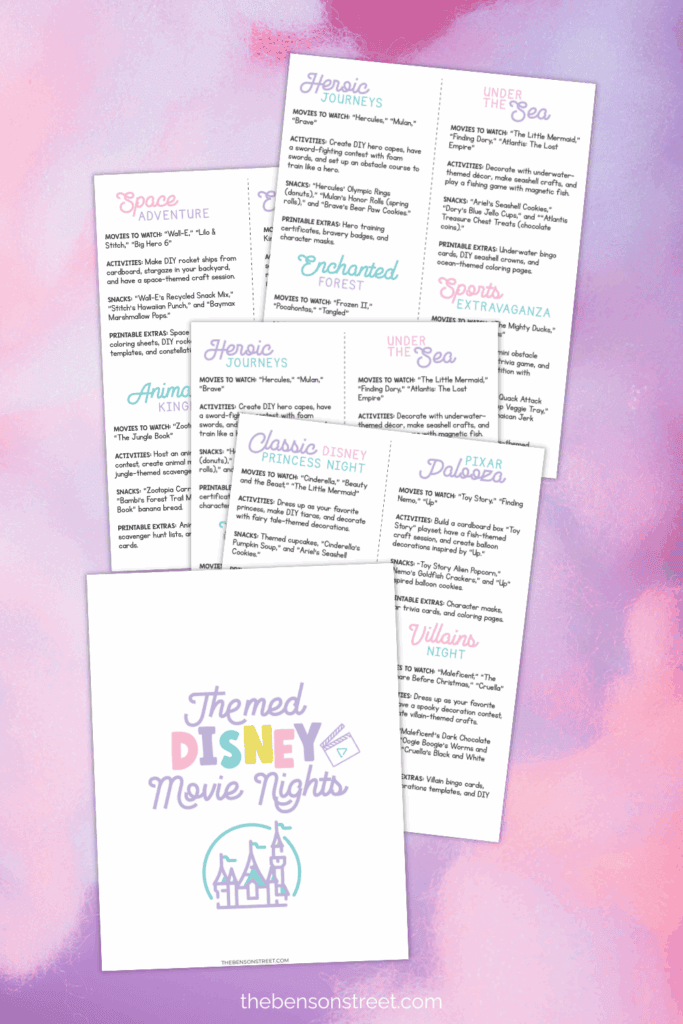 Heroic
JOURNEYS
MOVIES TO WATCH: "Hercules," "Mulan,"
"Brave"
ACTIVITIES: Create DIY hero capes, have
a sword-fighting contest with foam
swords, and set up an obstacle course to
train like a hero.
SNACKS: "Hercules' Olympic Rings
(donuts)," "Mulan's Honor Rolls (spring
rolls)," and "Brave's Bear Paw Cookies."
PRINTABLE EXTRAS: Hero training
certificates, bravery badges, and
character masks.
Enchanted
FOREST
MOVIES TO WATCH: "Frozen II,"
"Pocahontas," "Tangled"
UNDER
THE Sea
MOVIES TO WATCH: "The Little Mermaid,"
"Finding Dory," "Atlantis: The Lost
Empire"
ACTIVITIES: Decorate with underwater-
themed décor, make seashell crafts, and
play a fishing game with magnetic fish.
SNACKS: "Ariel's Seashell Cookies,"
"Dory's Blue Jello Cups," and ""Atlantis
Treasure Chest Treats (chocolate
coins)."
PRINTABLE EXTRAS: Underwater bingo
cards, DIY seashell crowns, and
ocean-themed coloring pages.
Sports
EXTRAVAGANZA
MOVIES TO
he Mighty Ducks,
mini obstacle
trivia game, and
tition with
Quack Attack
p Veggie Tray,"
aican Jerk
Space
ADVENTURE
MOVIES TO WATCH: "Wall-E," "Lilo &
Stitch," "Big Hero 6"
ACTIVITIES: Make DIY rocket ships from
cardboard, stargaze in your backyard,
and have a space-themed craft session.
SNACKS: "Wall-E's Recycled Snack Mix,"
"Stitch's Hawaiian Punch," and "Baymax
Marshmallow Pops."
PRINTABLE EXTRAS: Space
coloring sheets, DIY rock
templates, and constella
Anima
KING
MOVIES TO WATCH: "Zoot
"The Jungle Book"
ACTIVITIES: Host an anim
contest, create animal m
jungle-themed scaveng
SNACKS: "Zootopia Carr
"Bambi's Forest Trail M
Book" banana bread.
PRINTABLE EXTRAS: Ani
scavenger hunt lists, a
cards.
Heroic
JOURNEYS
MOVIES TO WATCH: "Hercules," "Mulan,"
"Brave"
ACTIVITIES: Create DIY hero capes, have
a sword-fighting contest with foam
swords, and
train like a h
SNACKS: "H
(donuts),"
rolls)," and
PRINTABLE
certificat
character
UNDER
THE Sea
MOVIES TO WATCH: "The Little Mermaid,"
"Finding Dory," "Atlantis: The Lost
Empire"
ACTIVITIES: Decorate with underwater-
themed décor, make seashell crafts, and
play a fishing game with magnetic fish.
Classic DISNEY
PRINCESS NIGHT
MOVIES TO WATCH: "Cinderella," "Beauty
and the Beast," "The Little Mermaid"
ACTIVITIES: Dress up as your favorite
princess, make DIY tiaras, and decorate
with fairy tale-themed decorations.
SNACKS: Themed cupcakes, "Cinderella's
Pumpkin Soup," and "Ariel's Seashell
Cookies."
PIXAR
Palooza
MOVIES TO WATCH: "Toy Story," "Finding
Nemo," "Up"
ACTIVITIES: Build a cardboard box "Toy
Story" playset, have a fish-themed
craft session, and create balloon
decorations inspired by "Up."
SNACKS: "Toy Story Alien Popcorn,"
"Nemo's Goldfish Crackers," and "Up"
inspired balloon cookies.
PRINTABLE EXTRAS: Character masks,
or trivia cards, and coloring pages.
Villains
NIGHT
ES TO WATCH: "Maleficent," "The
are Before Christmas," "Cruella"
TIES: Dress up as your favorite
ave a spooky decoration contest,
ate villain-themed crafts.
"Maleficent's Dark Chocolate
"Oogie Boogie's Worms and
"Cruella's Black and White
EXTRAS: Villain bingo cards,
orations templates, and DIY
Themed
DISNEY
Movie Nights
THEBENSONSTREET.COM
thebensonstreet.com